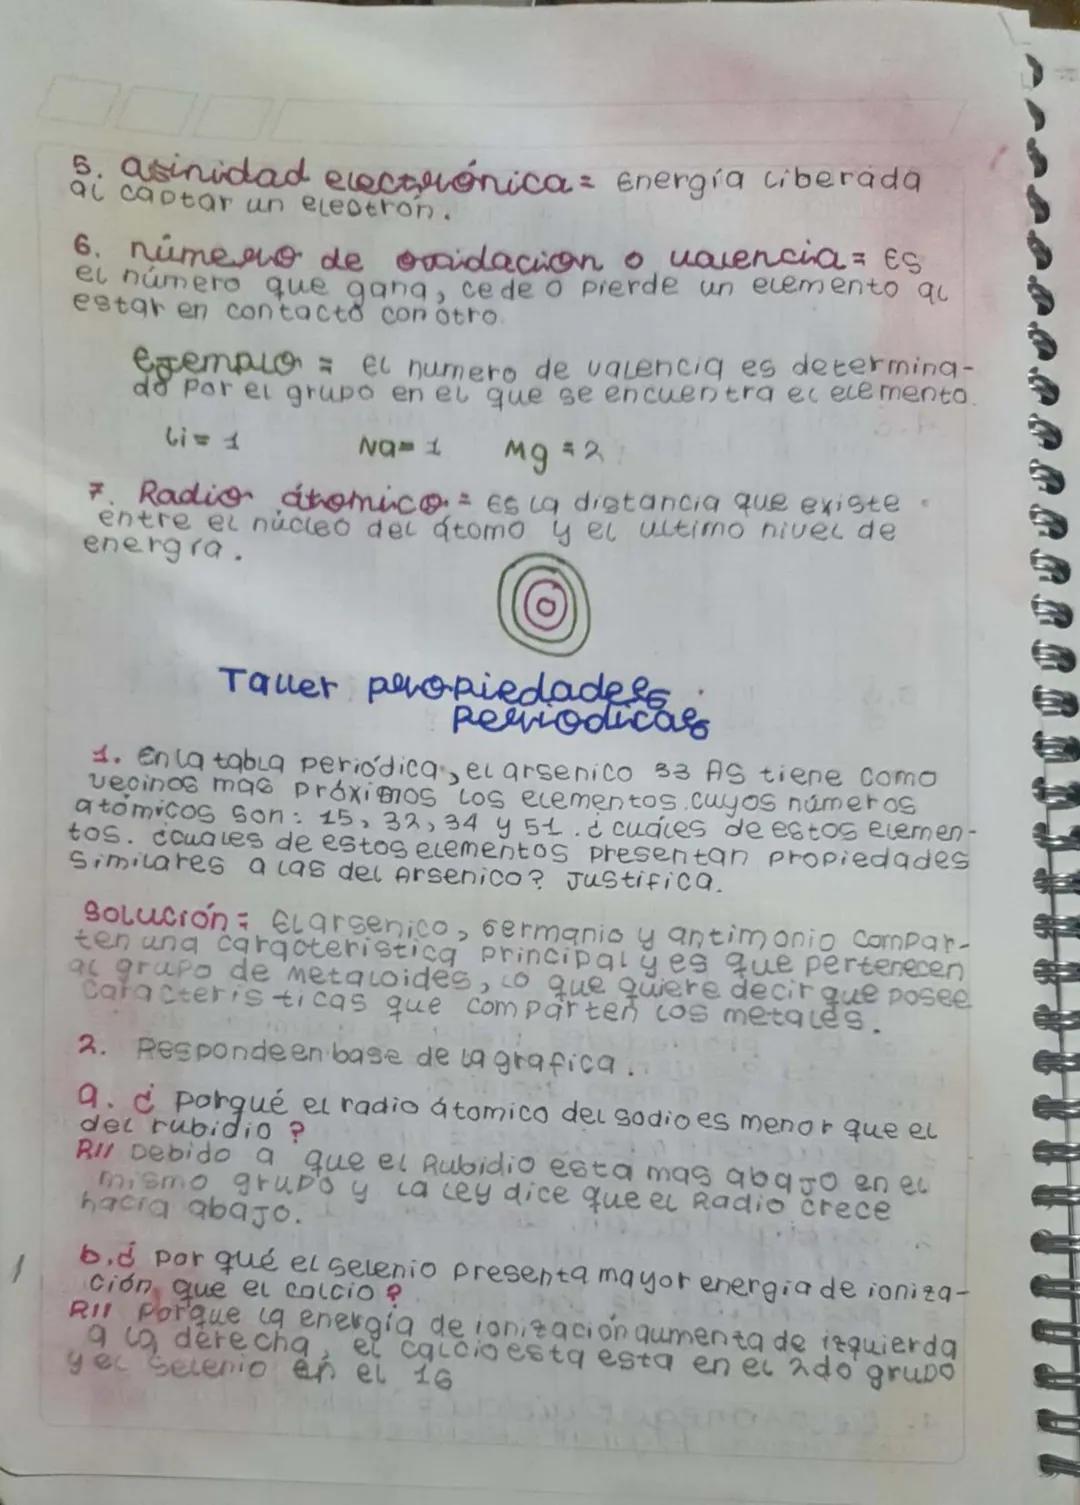 5. afinidad electrónica = Energía liberada
al captar un electrón.
6. número de oxidacion o valencia = Es
el número que gana, cede o pierde un elemento al
estar en contacto con otro.
Ejemplo = el numero de valencia es determina-
do por el grupo en el que se encuentra el elemento.
Li = 1 Na = 1 Mg = 2
7. Radio átomico = Es la distancia que existe
entre el núcleo del átomo y el ultimo nivel de
energía.
Taller propiedades
Periodicas
1. En la tabla periódica, el arsenico 33 AS tiene como
vecinos mas próximos los elementos cuyos números
atómicos son: 15, 32, 34 y 51. ¿cuáles de estos elemen-
tos. ¿cuales de estos elementos presentan propiedades
similares a las del Arsenico? Justifica.
Solución = El arsenico, Germanio y antimonio compar-
ten una caracteristica principal y es que pertenecen
al grupo de metaloides, lo que quiere decir que posee
caracteristicas que comparten los metales.
2. Responde en base de la grafica.
a. ¿Porqué el radio átomico del sodio es menor que el
del rubidio?
R// Debido a que el Rubidio esta mas abajo en el
mismo grupo y la ley dice que el Radio crece
hacia abajo.
b. ¿Por qué el selenio presenta mayor energia de ioniza-
ción que el calcio?
R// Porque la energía de ionización aumenta de izquierda
a la derecha, el calcio esta esta en el 2do grupo
y el selenio en el 16